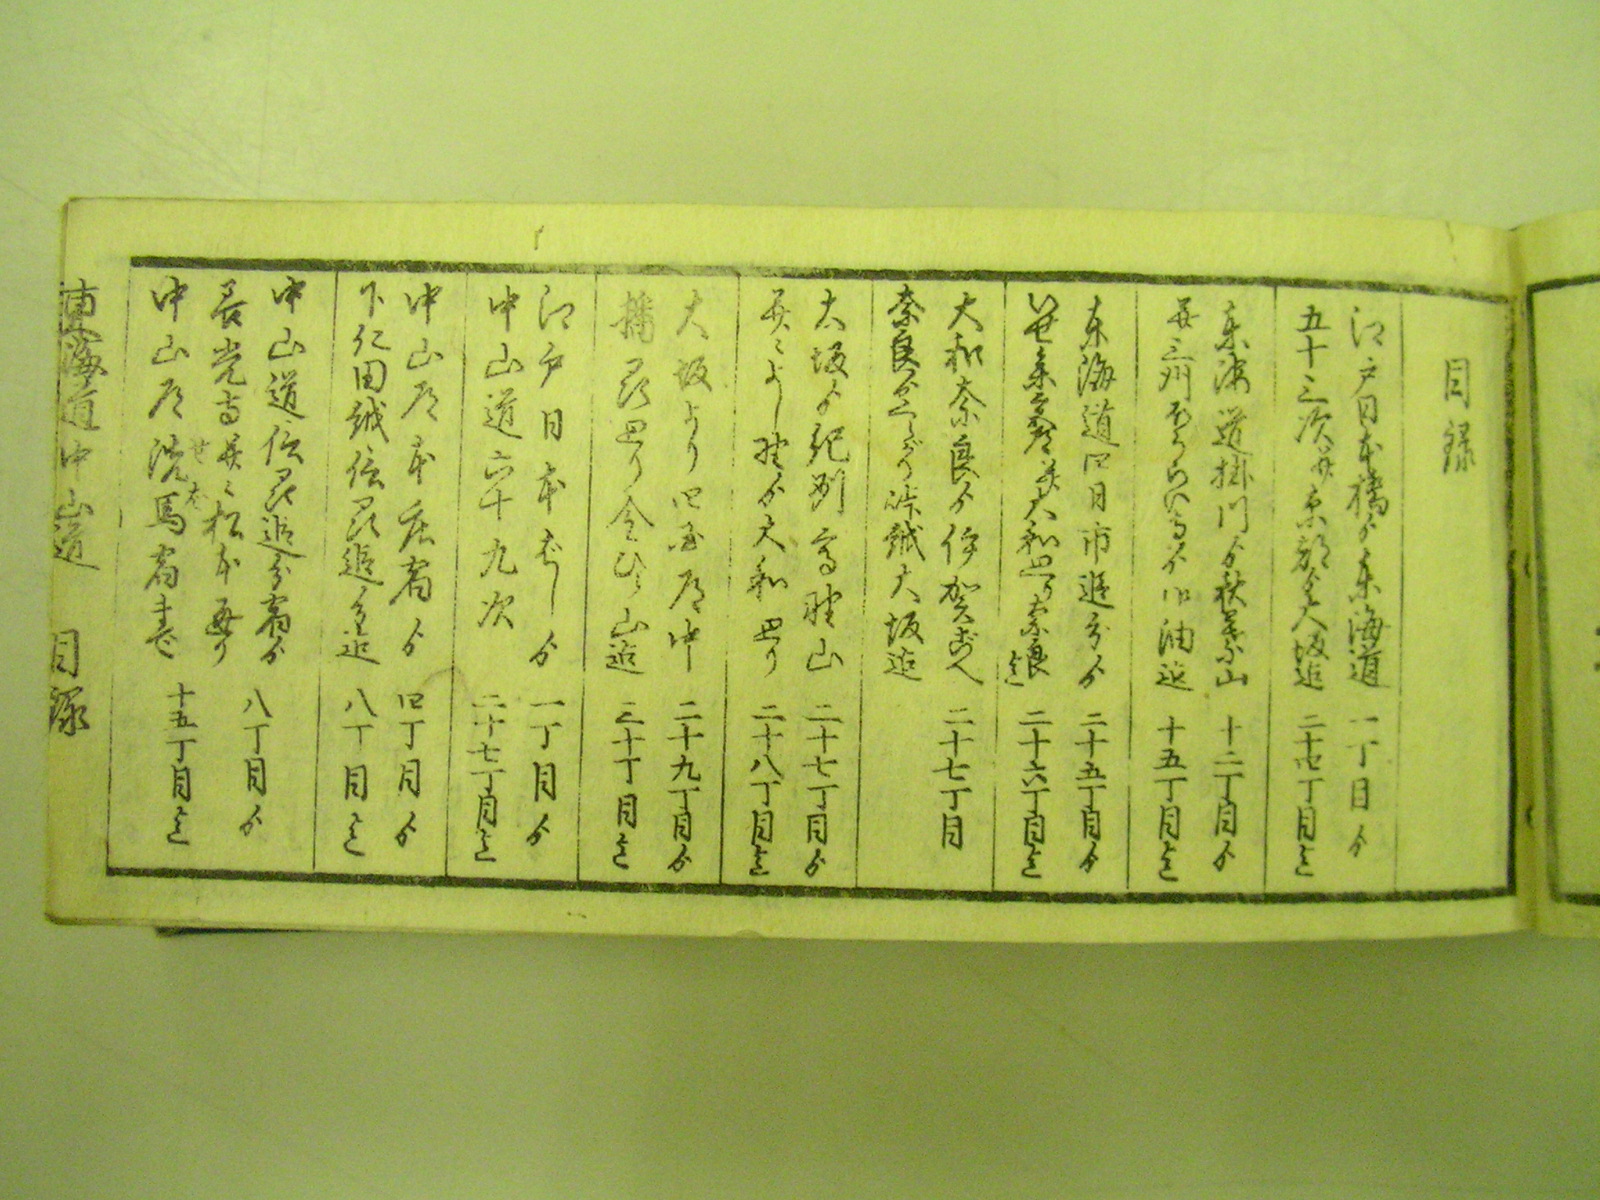 目録
江戸日本橋ゟ東海道 一丁目ゟ
五十三次并京都ゟ大坂迄 二十七丁目迄
東海道掛川ゟ秋葉山 十二丁目ゟ
并三州ほうらい寺ゟ御油迄 十五丁目迄
東海道四日市追分ゟ 二十五丁目ゟ
いせ参宮并大和廻り奈良迄 二十六丁目迄
大和奈良ゟ伊賀ごへ 二十七丁目
奈良ゟくらがり峠越大坂迄
大坂ゟ紀州高野山 二十七丁目ゟ
并ニよし野ゟ大和廻り 二十八丁目迄
大坂より四国道中 二十九丁目ゟ
播州廻り金ひら山迄 三十丁目迄
江戸日本ばしゟ 一丁目ゟ
中山道六十九次 二十七丁目迄
中山道本庄宿ゟ 四丁目ゟ
下仁田越信州追分迄 八丁目迄
中山道信州追分宿ゟ 八丁目ゟ
善光寺并ニ松本廻り
中山道洗馬宿まで 十五丁目迄
せば
東海道中山道 目録